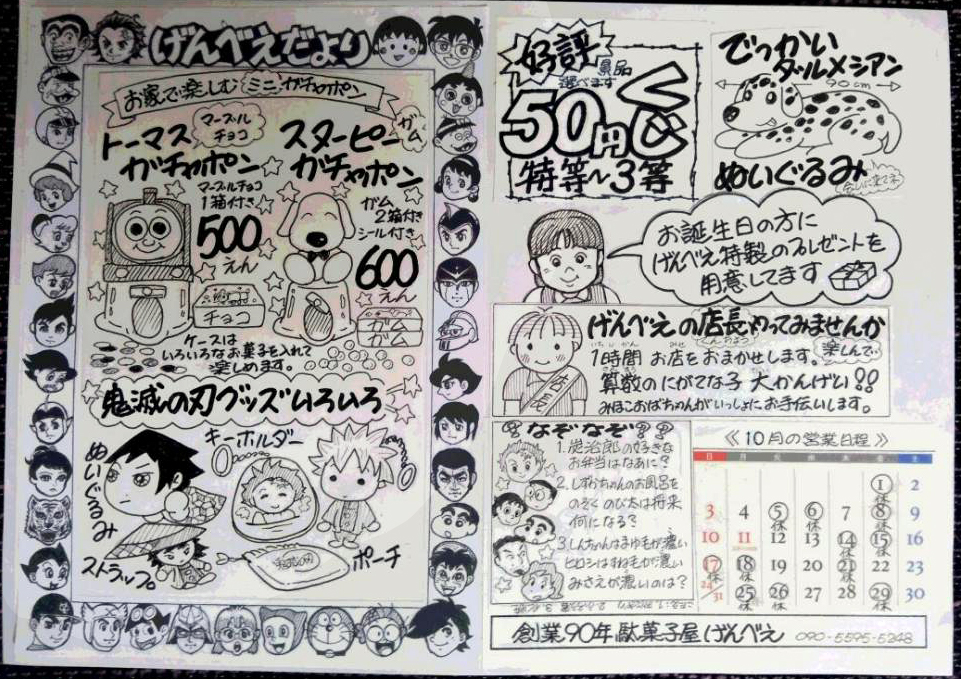 げんべえだより
お家で楽しむミニガチャポン
トーマス
ガチャポン
マーブル
チョコ
マーブルチョコ
1箱付き
500
えん
チョコ
スヌーピー
ガチャポン
ガム
ガム
2箱付き
シール付き
600
えん
ガム
ガム
ケースは
いろいろなお菓子を入れて
楽しめます。
鬼滅の刃グッズいろいろ
ぬいぐるみ
キーホルダー
ストラップ
ポーチ
好評
景品
選べます
50円くじ
特等~3等
でっかい
ダルメシアン
90cm
ぬいぐるみ
会いに来てネ
お誕生日の方に
げんべえ特製のプレゼントを
用意してます
げんべえの店長やってみませんか
1時間 お店をおまかせします。
楽しんで…
算数のにがてな子 大かんげい!!
みほこおばちゃんがいっしょにお手伝いします。
店長
なぞなぞ??
1.炭治郎の好きな
お弁当はなあに?
2.しずかちゃんのお風呂を
のぞくのび太は将来
何になる?
3.しんちゃんはまゆ毛が濃い
ヒロシはすね毛が濃い
みさえが濃いのは?
≪10月の営業日程≫
日 月 火 水 木 金 土
1 2
休
3 4 5 6 7 8 9
休 休 休
10 11 12 13 14 15 16
休 休
17 18 19 20 21 22 23
休 休 休
24/31 25 26 27 28 29 30
休 休 休
創業90年 駄菓子屋げんべえ 090-5595-5248